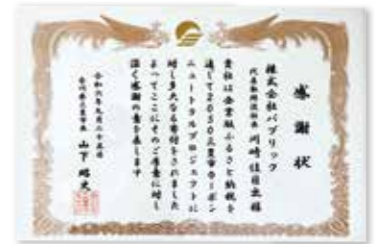 感謝状
株式会社パブリック
代表取締役社長 川崎 様
貴社は企業版ふるさと納税を
通じて2050三豊市カーボン
ニュートラルプロジェクトに
対し多大なる寄付をされました
よってここにそのご厚意に対し
深く感謝の意を表します
令和六年九月二十五日
香川県三豊市長 山下昭史